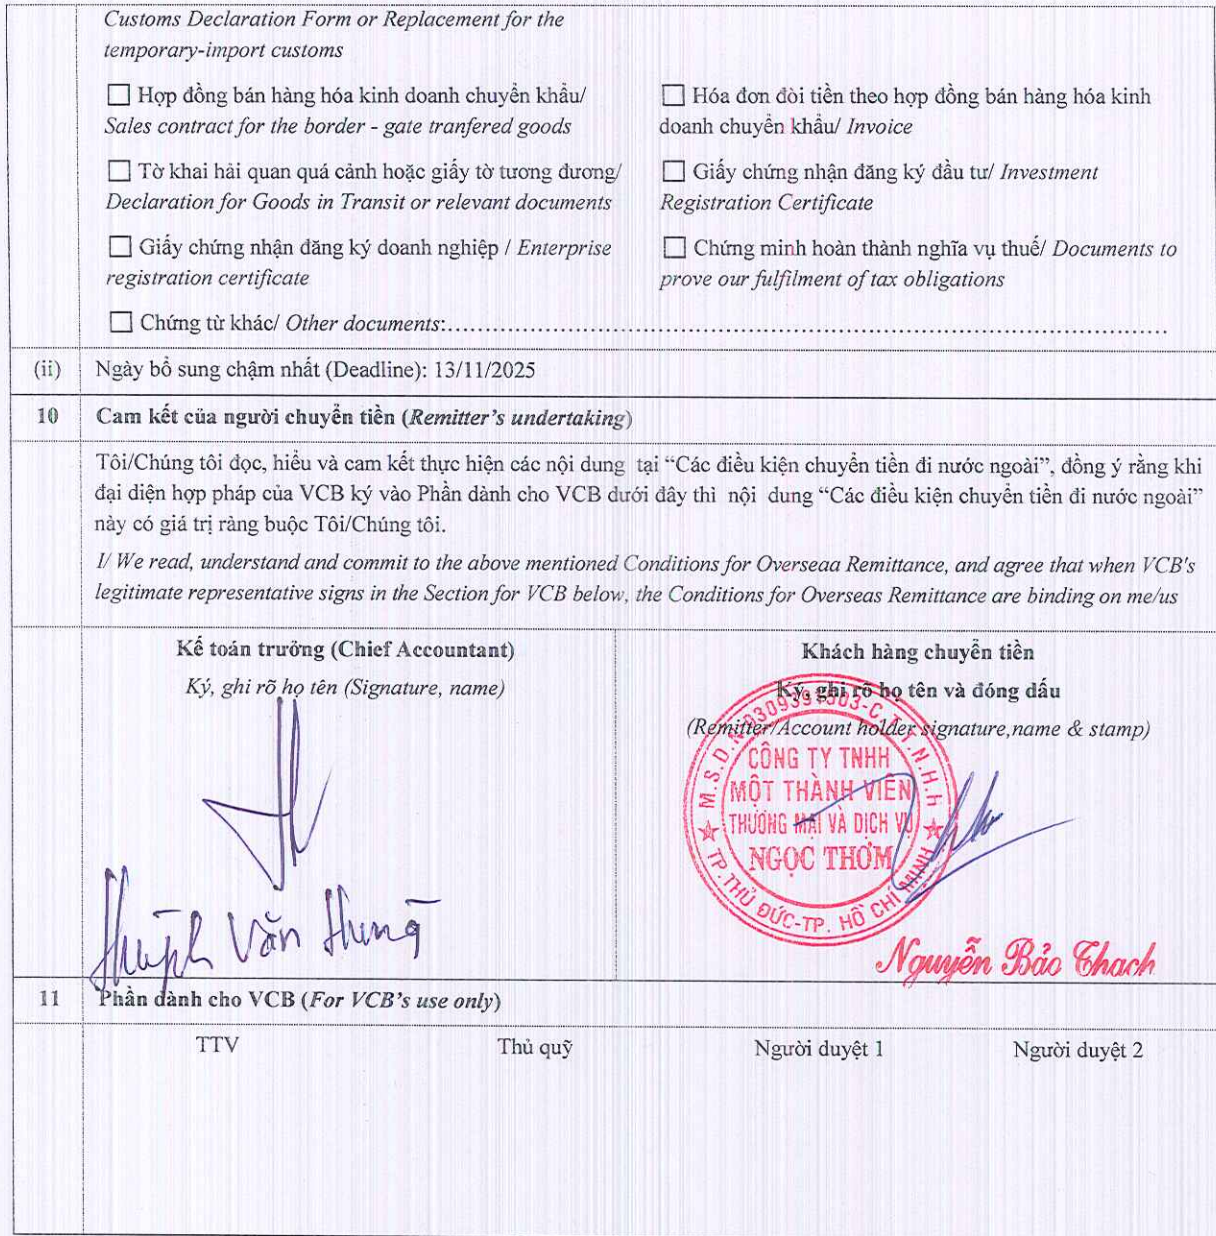 Customs Declaration Form or Replacement for the
temporary-import customs
☐ Hợp đồng bán hàng hóa kinh doanh chuyển khẩu/
Sales contract for the border - gate tranfered goods
☐ Hóa đơn đòi tiền theo hợp đồng bán hàng hóa kinh
doanh chuyển khẩu/ Invoice
☐ Tờ khai hải quan quá cảnh hoặc giấy tờ tương đương/
Declaration for Goods in Transit or relevant documents
☐ Giấy chứng nhận đăng ký đầu tư/ Investment
Registration Certificate
☐ Giấy chứng nhận đăng ký doanh nghiệp / Enterprise
registration certificate
☐ Chứng minh hoàn thành nghĩa vụ thuế/ Documents to
prove our fulfilment of tax obligations
☐ Chứng từ khác/ Other documents:..........................................................................................
(ii) Ngày bổ sung chậm nhất (Deadline): 13/11/2025
10 Cam kết của người chuyển tiền (Remitter's undertaking)
Tôi/Chúng tôi đọc, hiểu và cam kết thực hiện các nội dung tại “Các điều kiện chuyển tiền đi nước ngoài”, đồng ý rằng khi
đại diện hợp pháp của VCB ký vào Phần dành cho VCB dưới đây thì nội dung “Các điều kiện chuyển tiền đi nước ngoài”
này có giá trị ràng buộc Tôi/Chúng tôi.
I/ We read, understand and commit to the above mentioned Conditions for Overseaa Remittance, and agree that when VCB's
legitimate representative signs in the Section for VCB below, the Conditions for Overseas Remittance are binding on me/us
Kế toán trưởng (Chief Accountant)
Ký, ghi rõ họ tên (Signature, name)
Huỳnh Văn Hùng
Khách hàng chuyển tiền
Ký, ghi rõ họ tên và đóng dấu
(Remitter/Account holder signature,name & stamp)
M.S.D.N:0309391503-C.T.T.N.H.H
CÔNG TY TNHH
MỘT THÀNH VIÊN
THƯƠNG MẠI VÀ DỊCH VỤ
NGỌC THƠM
TP.THỦ ĐỨC-TP. HỒ CHÍ MINH
Nguyễn Bảo Thạch
11 Phần dành cho VCB (For VCB's use only)
TTV Thủ quỹ Người duyệt 1 Người duyệt 2